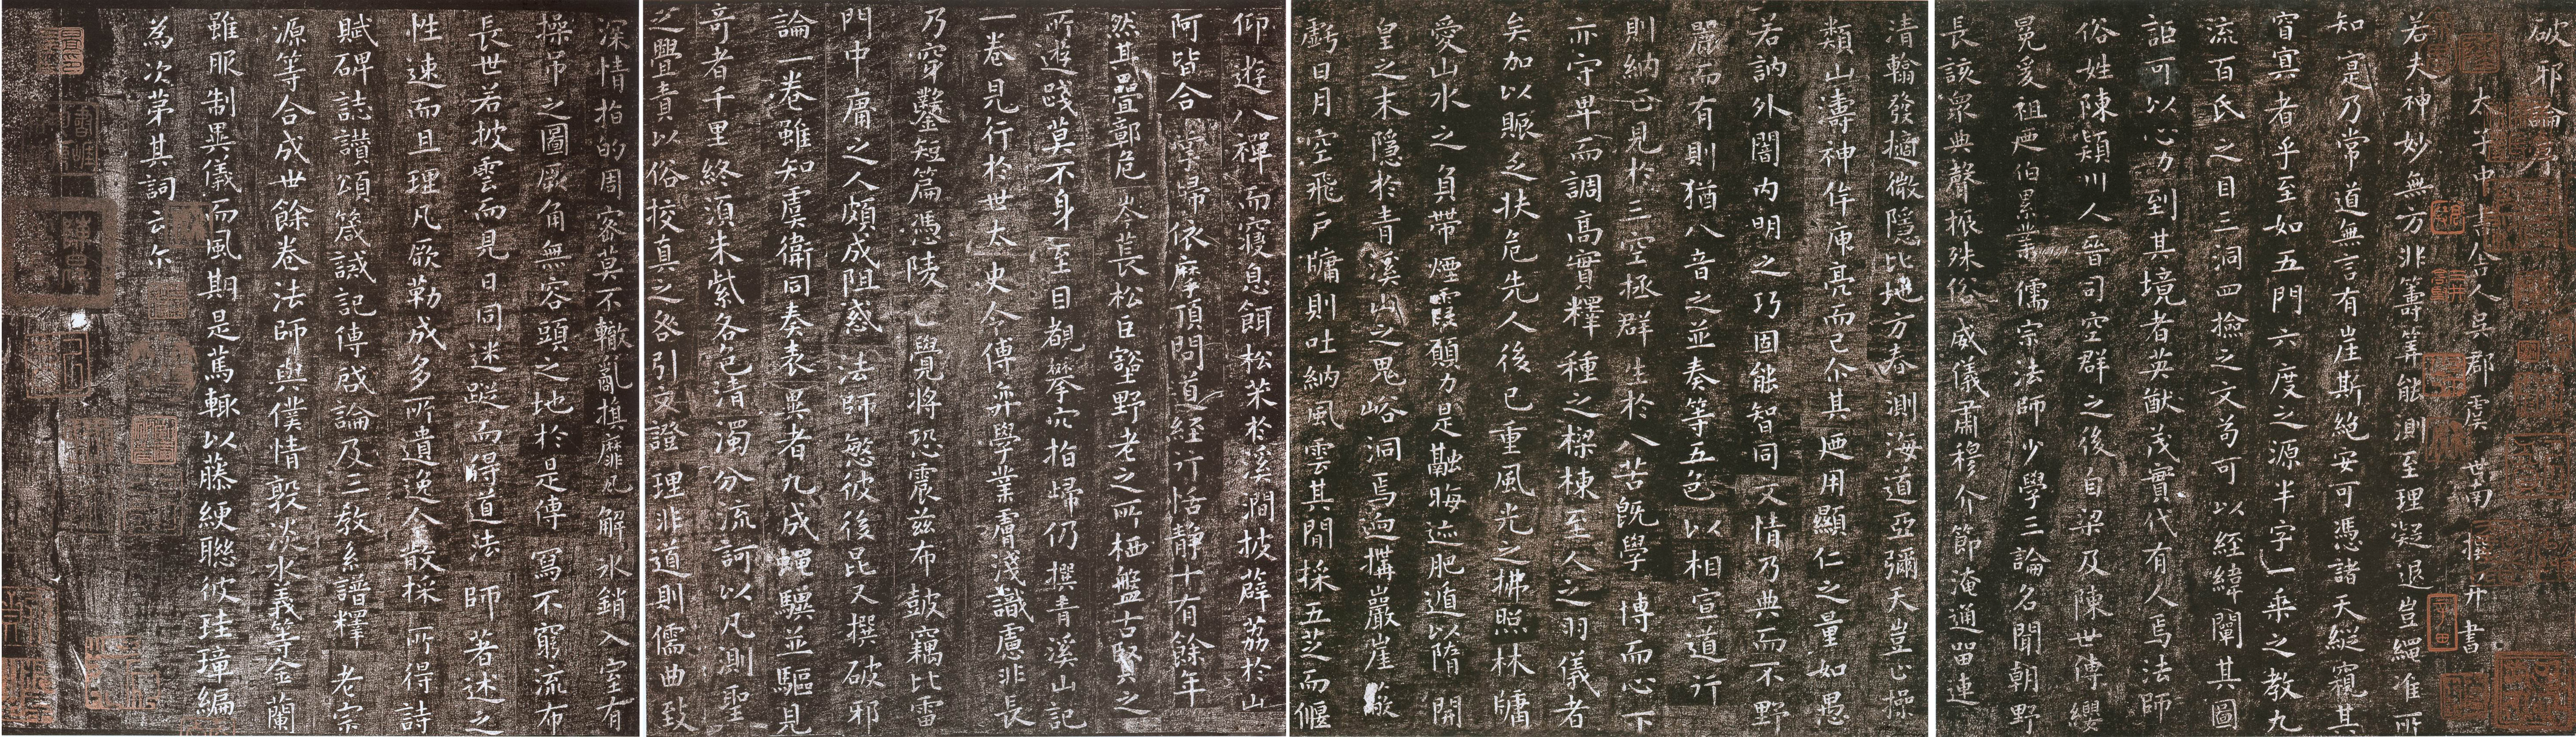 破邪論序
太子中書舍人吳郡虞世南撰并書
若夫神妙無方非籌筭能測至理凝邈豈繩准所
知寔乃常道無言有崖斯絕安可憑諸天縱窺其
窅冥者乎至如五門六度之源半字一乘之教九
流百氏之目三洞四撿之文苟可以經緯闡其圖
詎可以心力到其境者英猷茂實代有人焉法師
俗姓陳潁川人晉司空群之後自梁及陳世傳纓
冕爰祖迺伯累業儒宗法師少學三論名聞朝野
長該眾典聲振殊俗威儀肅穆介節淹通留連
清翰發擿微隱比地方春測海道亞彌天豈止操
類山濤神侔庾亮而已尒其廼用顯仁之量如愚
若訥外闇內明之巧固能智同文情乃典而不野
麗而有則猶八音之並奏等五色以相宣道行
則納正見於三空拯群生於八苦既學博而心下
亦守卑而調高實釋種之樑棟至人之羽儀者
矣加以賑乏扶危先人後已重風光之拂照林牖
愛山水之負帶煙霞願力是融晦迹肥遁以隋開
皇之末隱於青溪山之鬼峪洞焉迺構巖崖蔽
虧日月空飛戶牖則吐納風雲其間採五芝而偃
仰遊八禪而寢息餌松朮於溪澗披薜荔於山
阿皆合掌歸依摩頂問道經行恬靜十有餘年
然其疊鄣危岑長松巨豁野老之所栖盤古賢之
所遊踐莫不身至目觀攀穴指歸仍撰青溪山記
一卷見行於世太史令傅弈學業膚淺識慮非長
乃穿鑿短篇憑陵正覺將恐震茲布鼓竊比雷
門中庸之人頗成阻惑法師愍彼後昆又撰破邪
論一卷雖知虞衛同奏表異者九成蠅驥並驅見
奇者千里終須朱紫各色清濁分流訶以凡測聖
之舋責以俗挍真之咎引文證理非道則儒曲致
深情指的周密莫不轍亂旗靡瓦解冰銷入室有
操弔之圖厥角無容頭之地於是傳寫不窮流布
長世若披雲而見日同迷蹤而得道法師著述之
性速而且理凡厥勒成多所遺逸今散採所得詩
賦碑誌讚頌箴誡記傳啟論及三教系譜釋老宗
源等合成卅餘卷法師與僕情敦淡水義等金蘭
雖服制異儀而風期是篤輒以藤綆聯彼珪璋編
為次第其詞云尒